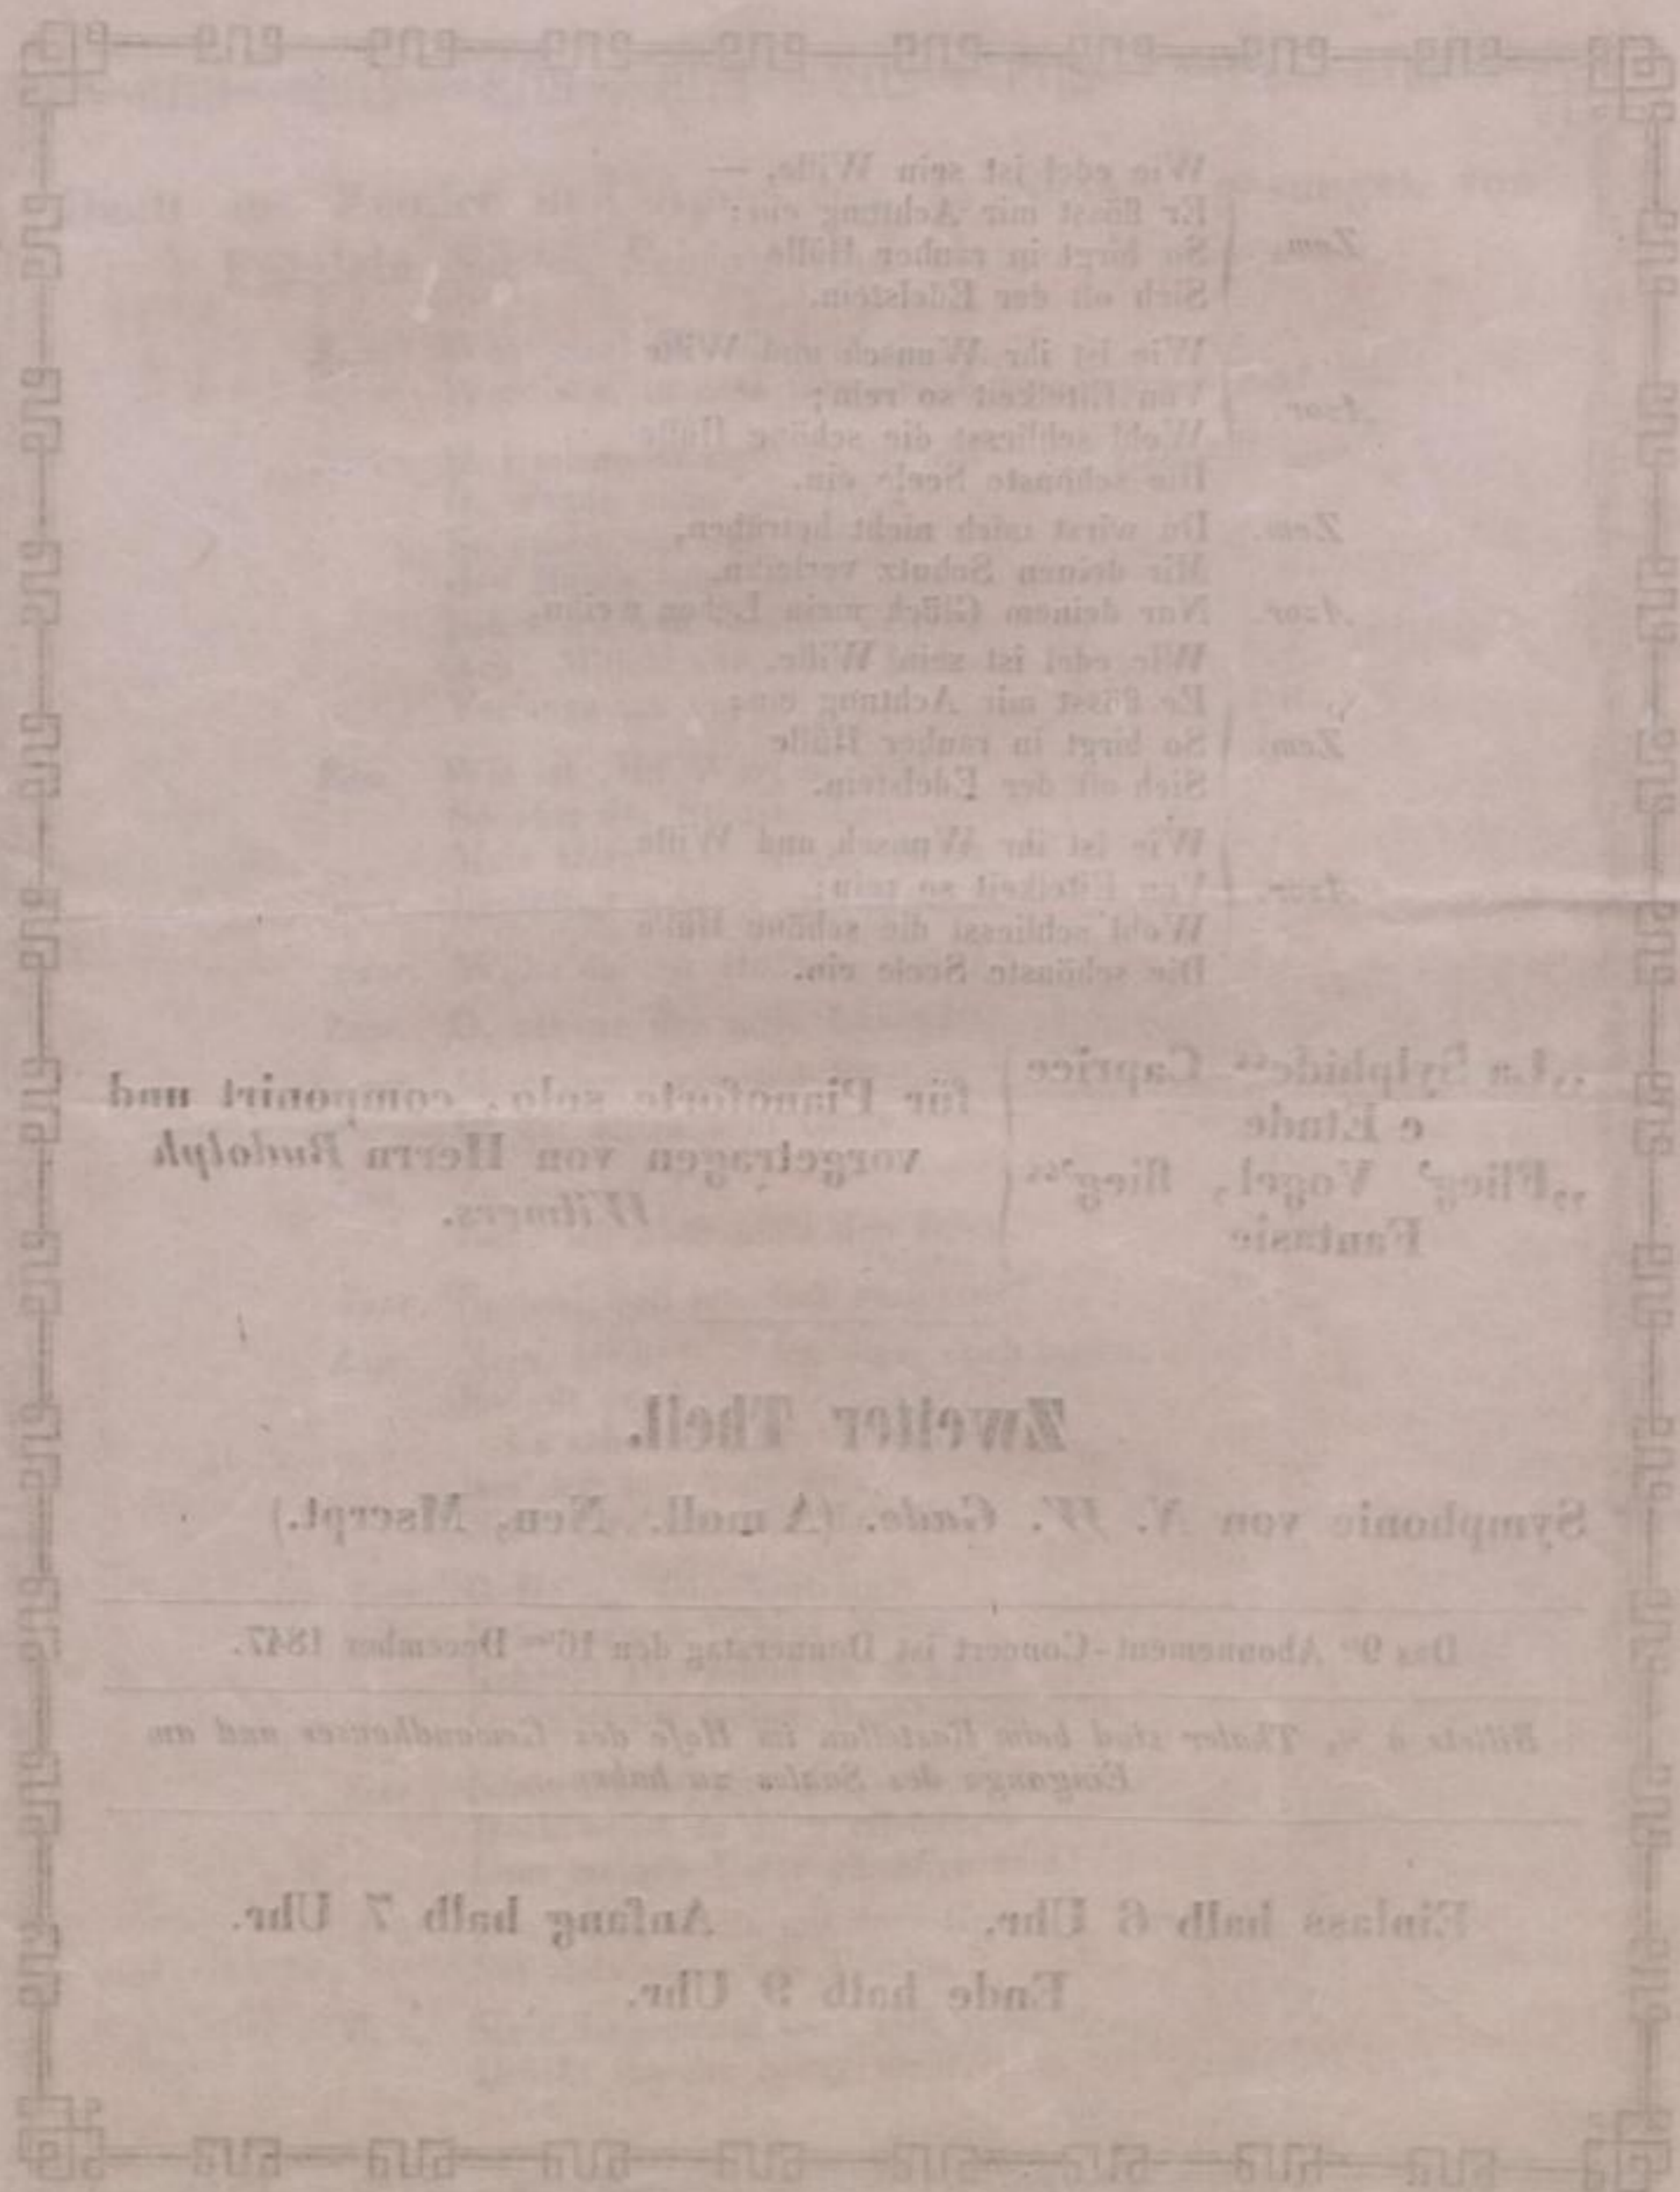 Wie edel ist sein Wille, —
Er flösst mir Achtung ein:
Zem. So birgt in rauher Hülle
Sich oft der Edelstein.
Wie ist ihr Wunsch und Wille
Azor. Von Eitelkeit so rein;
Wohl schliesst die schöne Hülle
Die schönste Seele ein.
Zem. Du wirst mich nicht betrüben,
Mir deinen Schutz verleihn.
Azor. Nur deinem Glück mein Leben weihn.
Wie edel ist sein Wille,
Er flösst mir Achtung ein:
Zem. So birgt in rauher Hülle
Sich oft der Edelstein.
Wie ist ihr Wunsch und Wille
Azor. Von Eitelkeit so rein;
Wohl schliesst die schöne Hülle
Die schönste Seele ein.
„La Sylphide“ Caprice
e Etude
„Flieg’ Vogel, flieg’“
Fantasie
für Pianoforte solo, componirt und
vorgetragen von Herrn Rudolph
Willmers.
Zweiter Theil.
Symphonie von N. W. Gade. (A moll. Neu, Mscrpt.)
Das 9te Abonnement-Concert ist Donnerstag den 16ten December 1847.
Billets à Thaler sind beim Kastellan im Hofe des Gewandhauses und am
Eingange des Saales zu haben.
Einlass halb 6 Uhr. Anfang halb 7 Uhr.
Ende halb 9 Uhr.